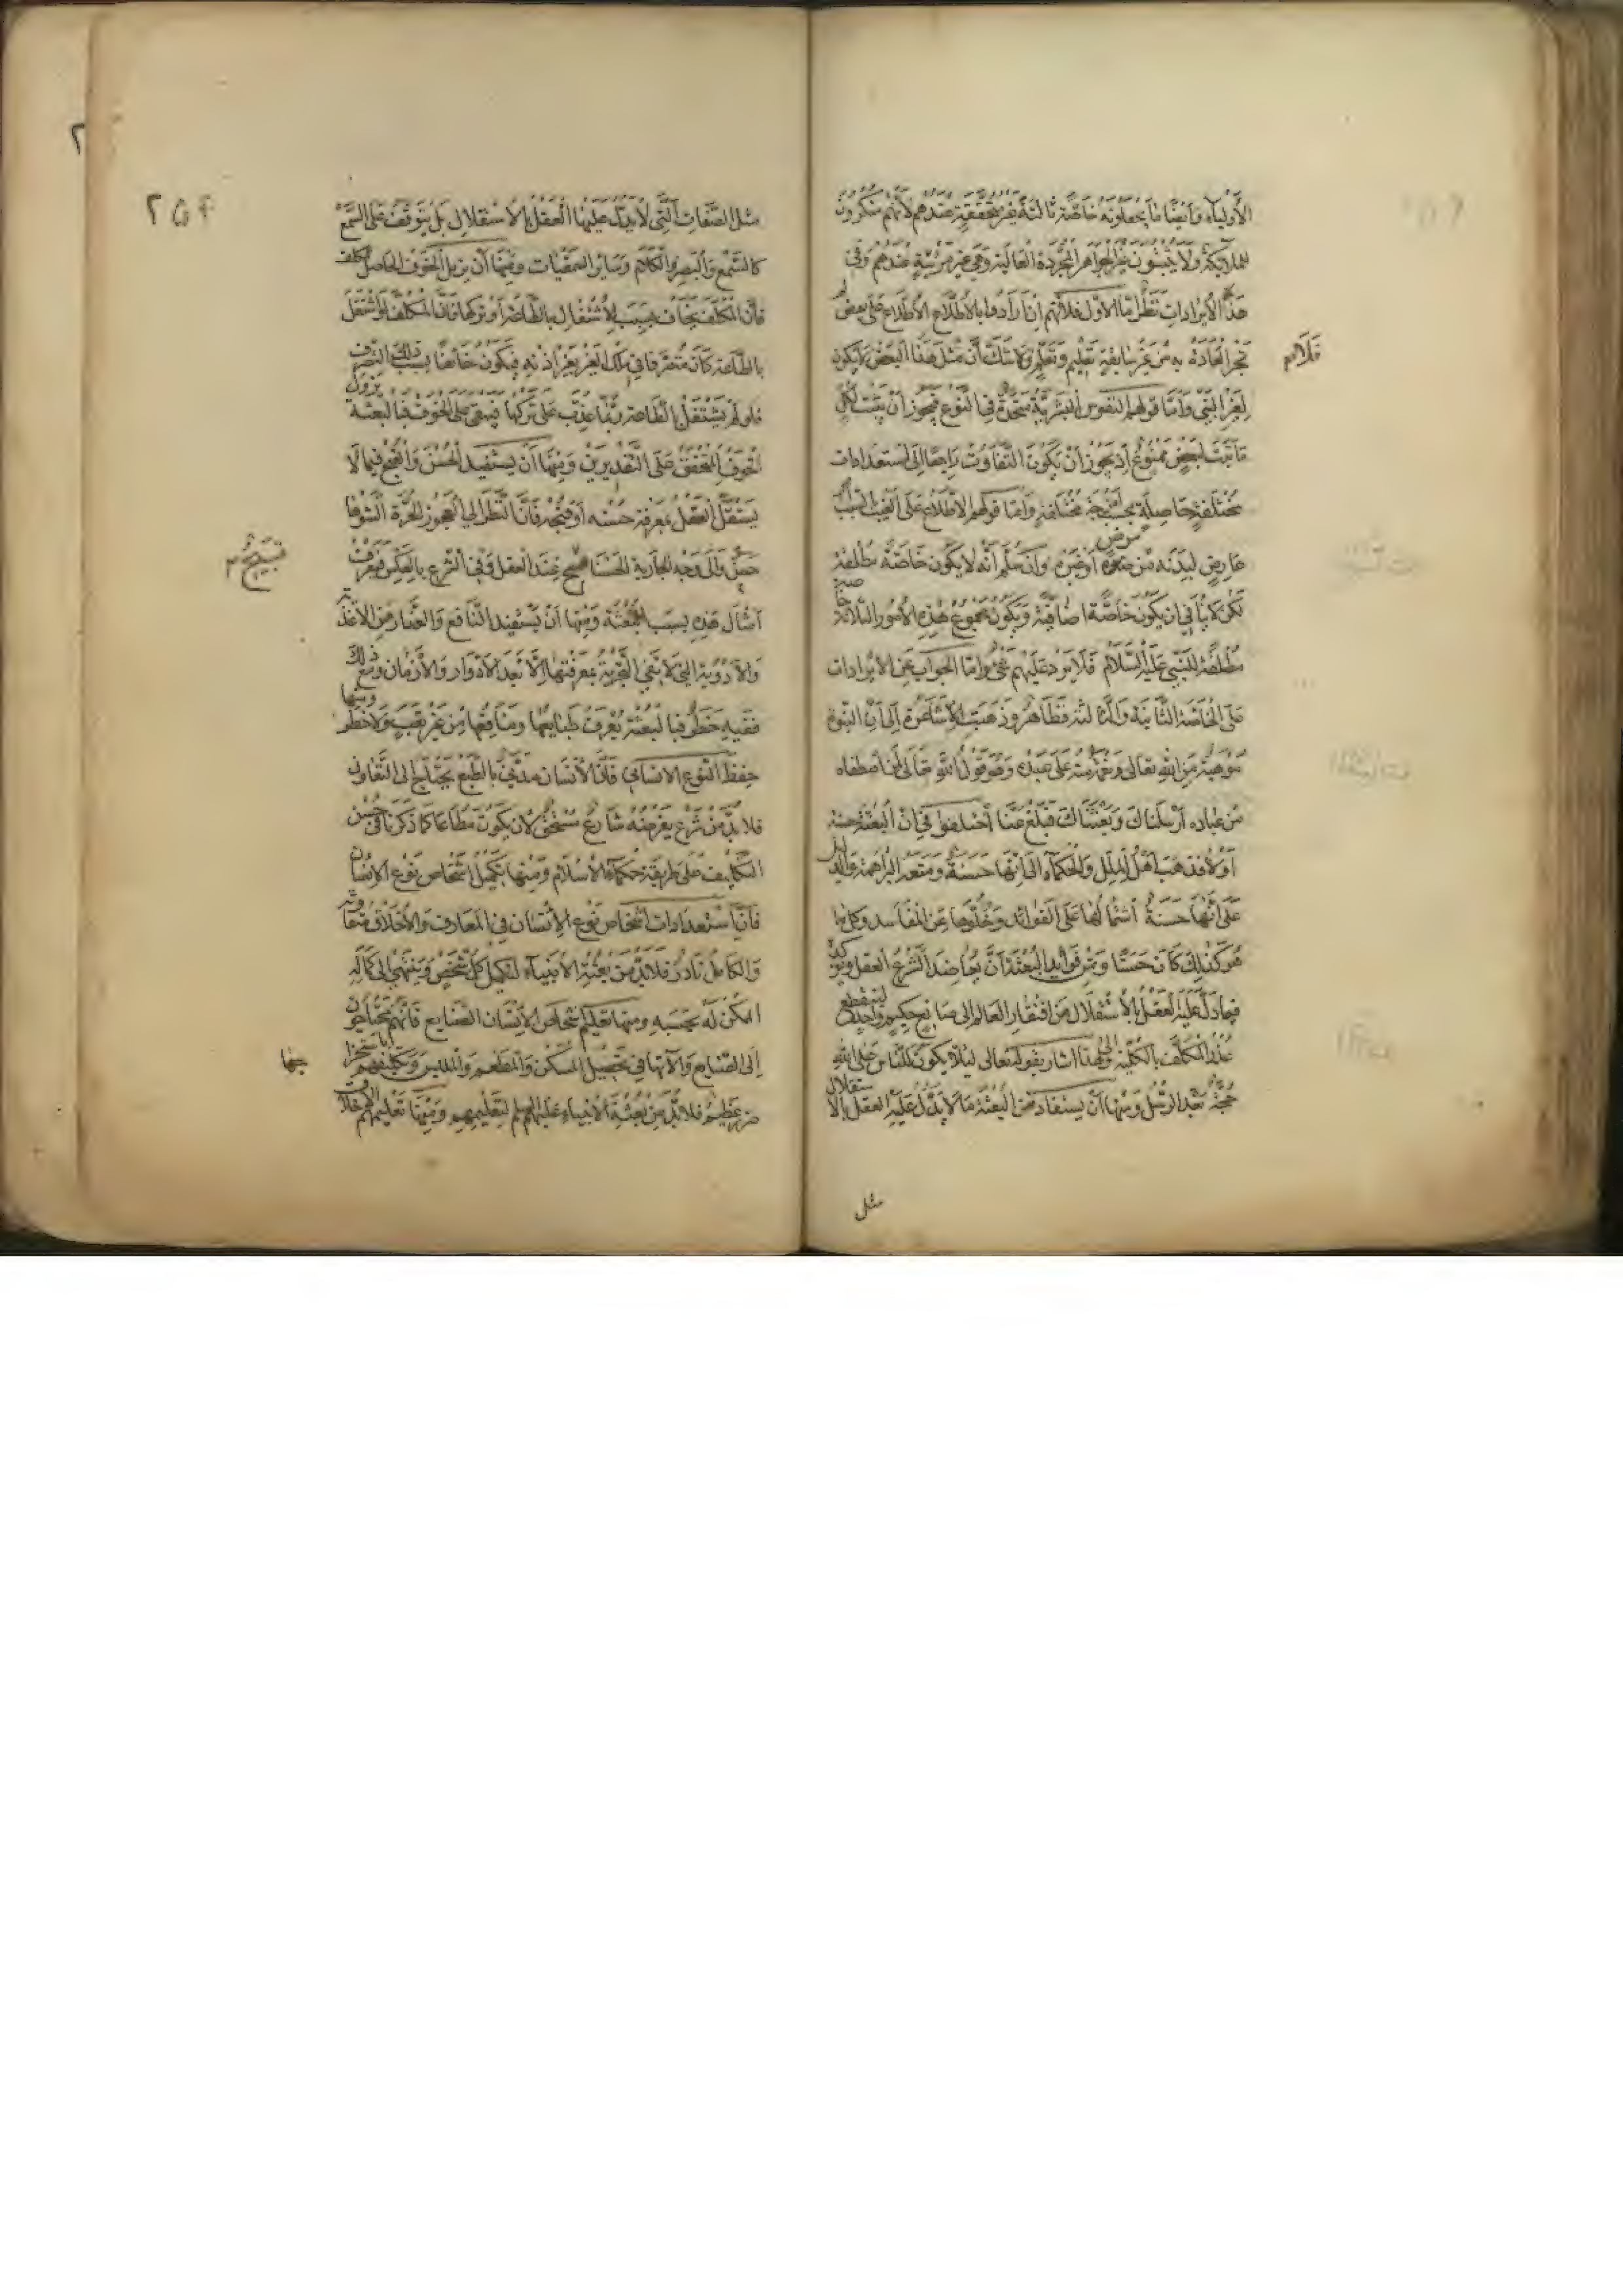 الأولياء وأيضًا ما يجعلونه خاصة ثالثة غير متحققة عندهم لأنهم منكرون
للملائكة ولا يثبتون غير الجواهر المجردة العالية وهي غير مرئية عندهم وفي
هذه الإيرادات نظر أما الأول فلأنهم إن أرادوا بالاطلاع الاطلاع على بعض لم
تجر العادة به من غير سابقة تعليم وتعلم فلا شك أن مثل هذا البعض لا يكون
فلا م
لغير النبي وأما قولهم النفوس البشرية متحدة في النوع فيجوز أن يثبت لكل
ما ثبت لبعض ممنوع إذ يجوز أن يكون التفاوت راجعا إلى استعدادات
مختلفة حاصلة بحسب مختلفة وأما قولهم الاطلاع على الغيب لسبب
عارض لبدنه من مرض أو غيره وإن سلم أنه لا يكون خاصة مطلقة
لكن لا ينافي ان يكون خاصة اضافية ويكون مجموع هذه الأمور الثلاثة خاصة
مطلقة للنبي عليه السلام فلا يرد عليهم شيء وأما الجواب عن الإيرادات
على الخاصة الثانية والثالثة فظاهر وذهبت الأشاعرة إلى أن النبوة
موهبة من الله تعالى ونعمة منه على عبده وهو قول الله تعالى لمن اصطفاه
من عباده أرسلناك وبعثناك فبلغ عنا اختلفوا في أن البعثة حسنة
أو لا فذهب أهل الملل والحكماء إلى أنها حسنة ومنعه البراهمة والدليل
على أنها حسنة اشتمالها على الفوائد وخلوها عن المفاسد وكل ما
هو كذلك كان حسنا ومن فوائد البعثة أن يعاضد الشرع العقل ويؤكد
فيما دل عليه العقل بالاستقلال من افتقار العالم إلى صانع حكيم واحد لينقطع
عذر المكلف بالكلية وإلى هذا أشار بقوله تعالى لئلا يكون للناس على الله
حجة بعد الرسل ومنها أن يستفاد من البعثة ما لا يدل عليه العقل بالاستقلال
مثل
٢٥۴
مثل الصفات التي لا يدل عليها العقل بالاستقلال بل يتوقف على السمع
كالسمع والبصر والكلام وسائر السمعيات ومنها أن يزيل الخوف الحاصل للمكلف
فإن المكلف يخاف بسبب الاشتغال بالطاعة أو تركها فإن المكلف لو اشتغل
بالطاعة كان متصرفا في ملك الغير بغير إذنه فيكون خائفا بسبب ذلك التصرف
ولو لم يشتغل بالطاعة ربما عذب على تركها فيبقى على الخوف فبالبعثة يزول
الخوف المتحقق على التقديرين ومنها أن يستفيد الحسن والقبح فيما لا
يستقل العقل بمعرفة حسنه أو قبحه فإن النظر إلى العجوز الحرة الشوها
حسن وإلى وجه الجارية الحسنا قبيح عند العقل وفي الشرع بالعكس فيعرف
قبيح م
أمثال هذه بسبب البعثة ومنها أن يستفيد النافع والضار من الأغذية
والأدوية التي لا تفي التجربة بمعرفتها إلا بعد الأدوار والأزمان ومع ذلك
ففيه خطر فبالبعثة يعرف طبايعها ومنافعها من غير تعب ولا خطر ومنها
حفظ النوع الإنساني فإن الإنسان مدني بالطبع يحتاج إلى التعاون
فلا بد من شرع يفرضه شارع مستحق لأن يكون مطاعا كما ذكرنا في حسن
التكليف على طريقة حكماء الإسلام ومنها تكميل أشخاص نوع الإنسان
فإن استعدادات أشخاص نوع الإنسان في المعارف والأخلاق متفاوتة
والكامل نادر فلا بد من بعثة الأنبياء لتكميل كل شخص وينتهي إلى كماله
الممكن له بحسبه ومنها تعليم أشخاص الإنسان الصنايع فإنهم محتاجون
إلى الصنايع وآلاتها في تحصيل المسكن والمطعم والملبس
ضرر عظيم فلا بد من بعثة الأنبياء عليهم السلام لتعليمهم ومنها تعليمهم الأخلاق